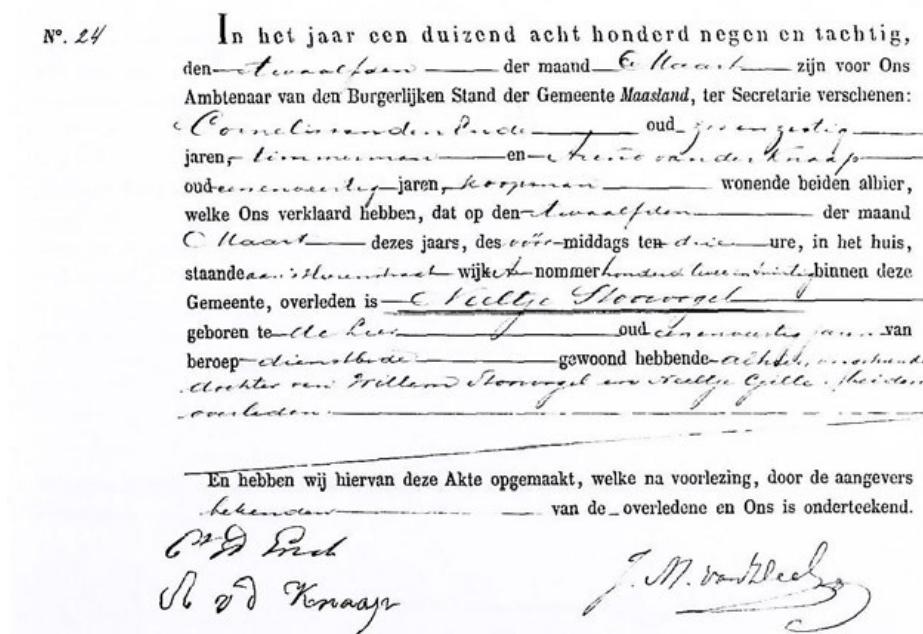 Nº. 24
In het jaar een duizend acht honderd negen en tachtig,
den twaalfden der maand Maart zijn voor Ons
Ambtenaar van den Burgerlijken Stand der Gemeente Maasland, ter Secretarie verschenen:
Cornelis van den Ende oud zes en zestig
jaren, timmerman en Arend van der Knaap
oud eenenveertig jaren, koopman wonende beiden alhier,
welke Ons verklaard hebben, dat op den twaalfden der maand
Maart dezes jaars, des vóór-middags ten drie ure, in het huis,
staande wijk A nommer honderd twee en twintig binnen deze
Gemeente, overleden is Neeltje Stoorvogel
geboren te de Lier oud eenenveertig jaren van
beroep dienstbode gewoond hebbende alhier,
dochter van Willem Stoorvogel en Neeltje beiden
overleden.
En hebben wij hiervan deze Akte opgemaakt, welke na voorlezing, door de aangevers
bekenden van de overledene en Ons is onderteekend.
Cs vd Ende
A v d Knaap
J. M. van